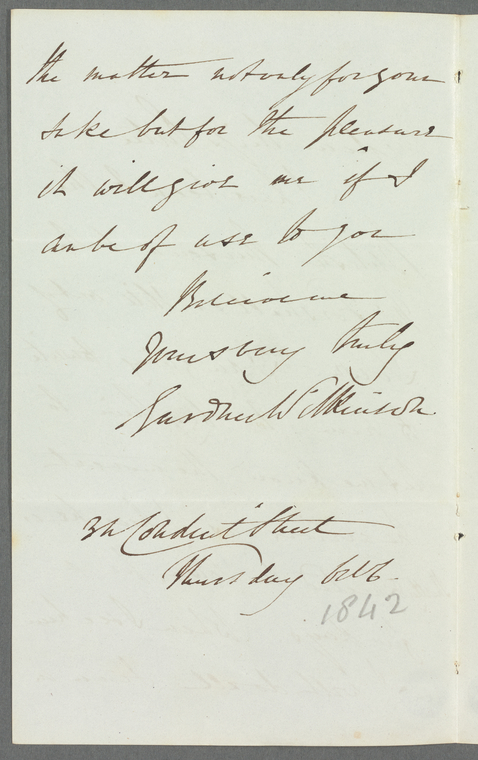 the matter not only for your
sake but for the pleasure
it will give me if I
can be of use to you
Believe me
Yours very truly
Gardner Wilkinson
Conduit Street
Thursday Oct 6
1842